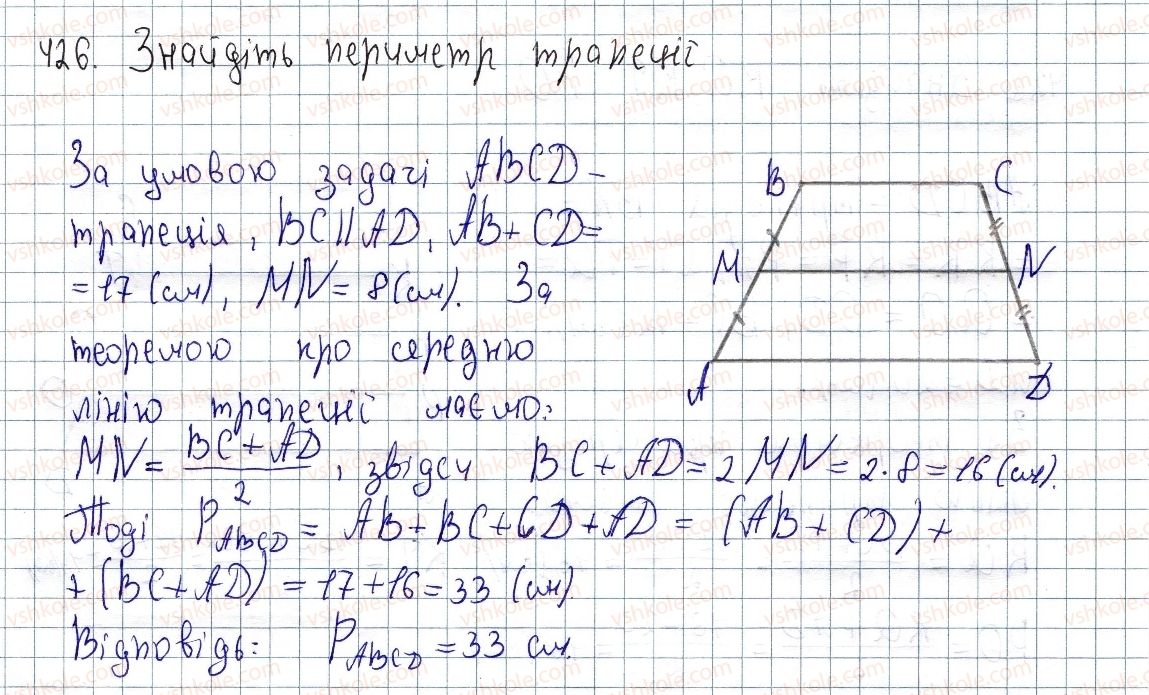 426. Знайдіть периметр трапеції
За умовою задачі ABCD –
трапеція, BC || AD, AB + CD =
= 17 (см), MN = 8 (см). За
теоремою про середню
лінію трапеції маємо:
MN = (BC + AD)/2, звідси BC + AD = 2MN = 2·8 = 16 (см).
Тоді P_ABCD = AB + BC + CD + AD = (AB + CD) +
+ (BC + AD) = 17 + 16 = 33 (см)
Відповідь: P_ABCD = 33 см.
B C
M N
A D
vshkole.com